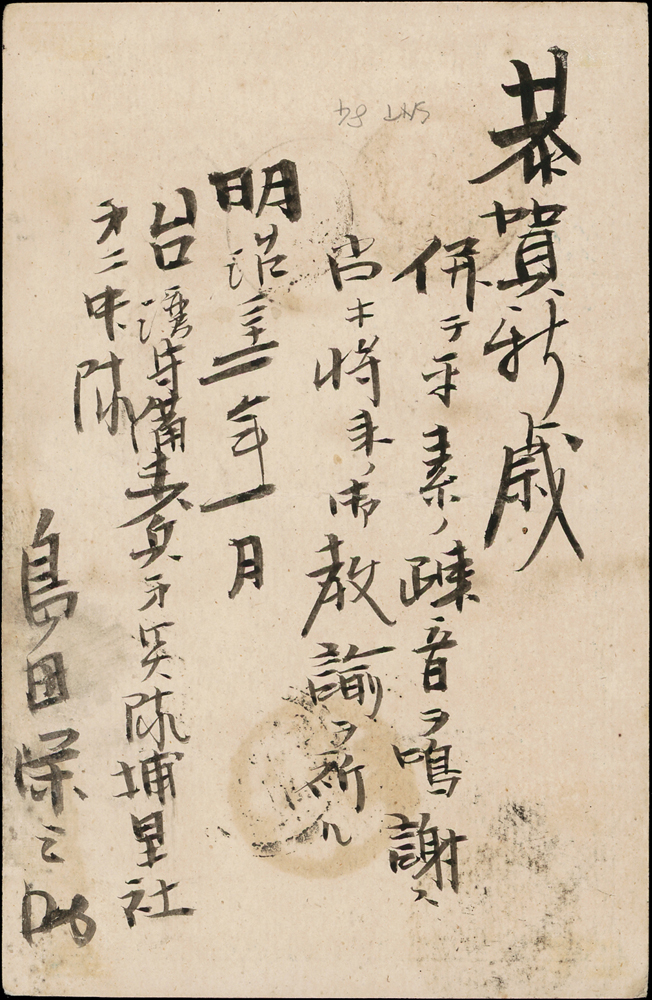 恭賀新歳
併テ平素ノ疎音ヲ鳴謝ス
尚ホ将来ノ御教諭ヲ祈ル
明治三十二年一月
台湾守備歩兵第大隊埔里社
第二中隊
島田栄之助